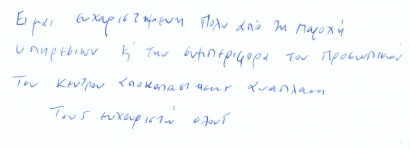 Ειμαι ευχαριστημενη πολυ απο τη παροχή
υπηρεσιων & την συμπεριφορα του προσωπικού
του κεντρου αποκαταστασης Αναπλαση
Τους ευχαριστώ ολους